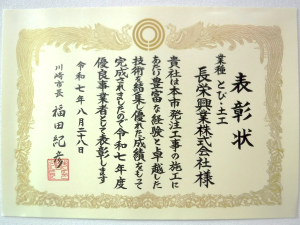 表彰状
業種 とび・土工
長栄興業株式会社様
貴社は本市発注工事の施工に
あたり豊富な経験と卓越した
技術を結集し優れた成績をもって
完成されましたので令和七年度
優良事業者として表彰します
令和七年八月二十八日
川崎市長 福田紀彦